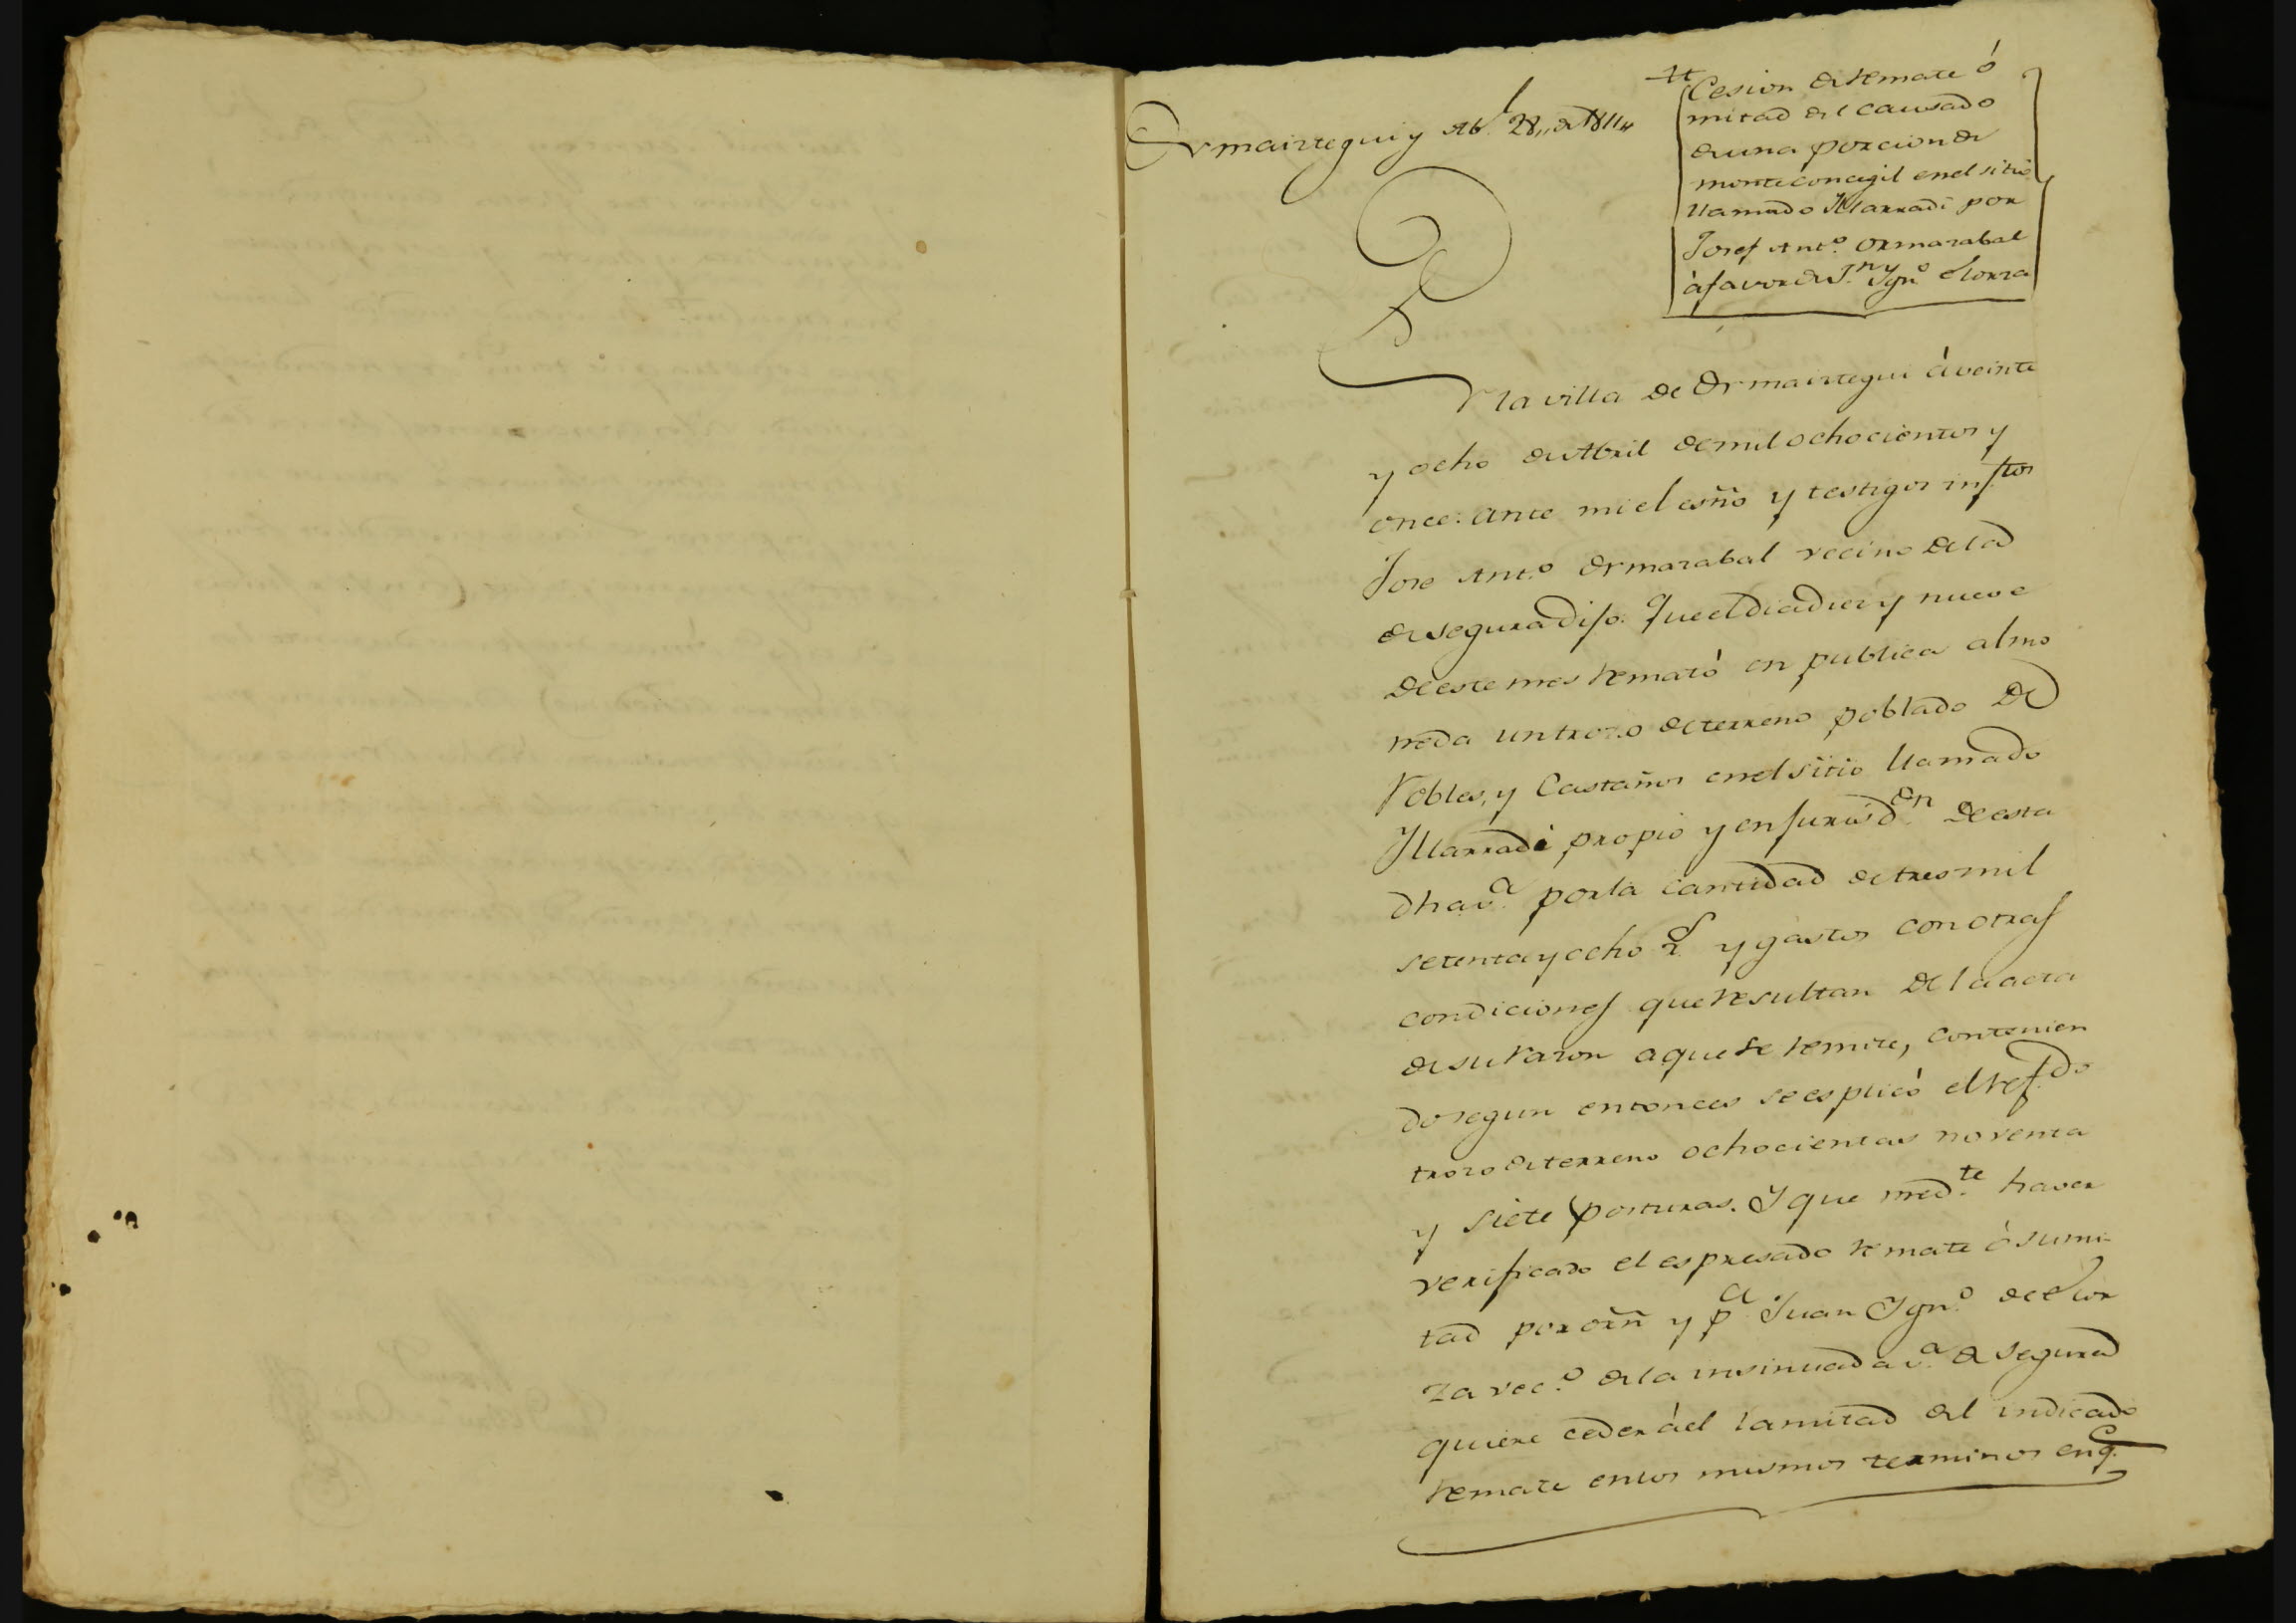 Ormaiztegui y Ab.l 28,, de 1811,,
Cesion de remate ó
mitad del causado
de una porcion de
monte concegil en el sitio
llamado Yllarradi por
Josef Ant.o Ormazabal
à favor de J.n Ygn.o Elorza
En la villa de Ormaiztegui á veinte
y ocho de Abril de mil ochocientos y
once: ante mi el esño y testigos infros
Jose Ant.o Ormazabal vecino de la
de Segura dijo: Que el dia diez y nueve
de este mes remató en publica almo
neda un trozo de terreno poblado de
Robles, y Castaños en el sitio llamado
Yllarradi propio y en jurisd.on de esta
dha v.a por la cantidad de tres mil
setenta y ocho r.s y gastos con otras
condiciones que resultan de la acta
de su razon a que se remite, contenien
do segun entonces se esplicó el ref.do
trozo de terreno ochocientas noventa
y siete posturas. Y que med.te haver
verificado el espresado remate ó su mi-
tad por orñ y p.a Juan Ygn.o de Elor
za vec.o de la insinuada v.a de Segura
quiere ceder á el la mitad del indicado
remate en los mismos terminos en q.e